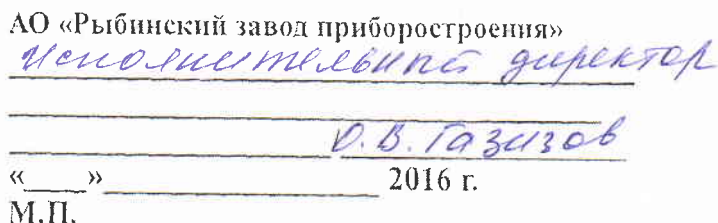 АО «Рыбинский завод приборостроения»
Исполнительный директор
О.В. Газизов
«____»________________ 2016 г.
М.П.